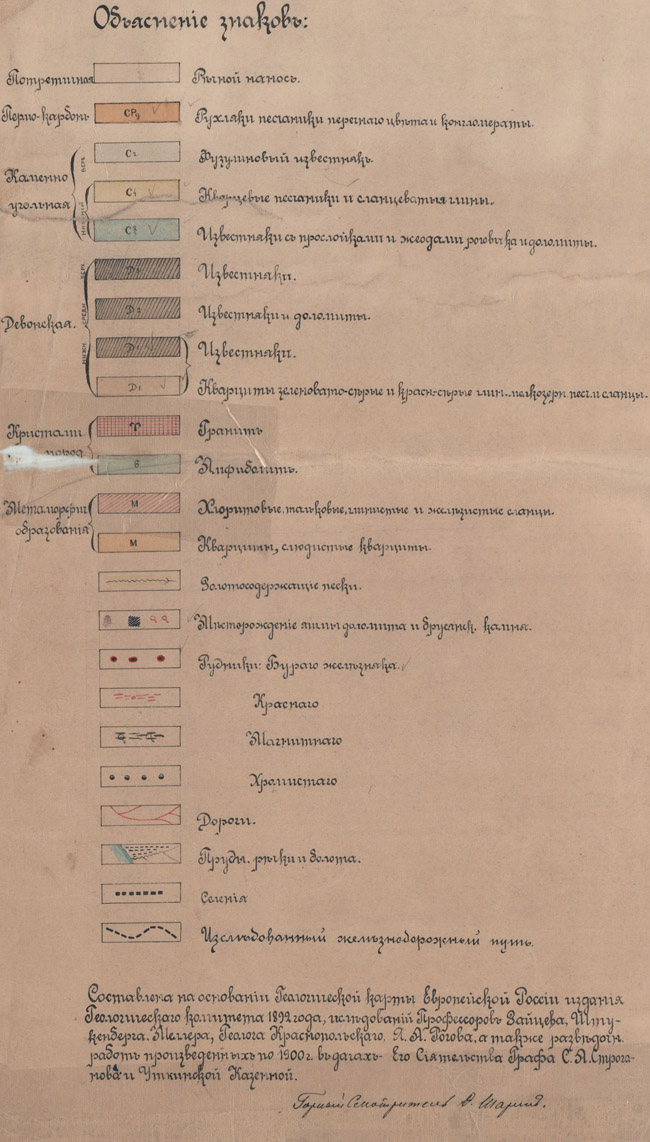 Объясненіе знаковъ:
Потретичная Рѣчной наносъ.
Пермо-карбонъ CPg Рухляки песчаники пермнаго цвѣта и конгломераты.
Каменно угольная верх. C₂ Фузулиновый известнякъ.
C₁ Кварцевые песчаники и сланцеватыя глины.
C Известняки съ прослойками и жеодами роговика и доломиты.
Девонская. верх. D₃ Известняки.
средн. D₂ Известняки и доломиты.
нижн. D₁ Известняки.
D₁ Кварциты зеленовато-сѣрые и красн-сѣрые глин. мелкозерн. песч. и сланцы.
Кристалл. пород. Гранитъ
Амфиболитъ.
Метаморфич. образованія М Хлоритовые, тальковые, глинистые и желѣзистые сланцы.
М Кварциты, слюдистые кварциты.
Золотосодержащіе пески.
Мѣсторожденіе яшмы доломита и брусянк. камня.
Рудники: Бураго желѣзняка.
Краснаго
Магнитнаго
Хромистаго
Дороги.
Пруды, рѣки и болота.
Селенія
Изслѣдованный желѣзнодорожный путь.
Составлена на основаніи Геологической карты Европейской Россіи изданія
Геологическаго комитета 1892 года, изслѣдованій Профессоровъ Зайцева, Шту-
кенберга, Меллера, Геолога Краснопольскаго, А. Рогова, а также развѣдочн.
работъ произведенныхъ по 1900 г. въ дачахъ Его Сіятельства Графа С. А. Строга-
нова и Уткинской Казенной.
Горный Смотритель